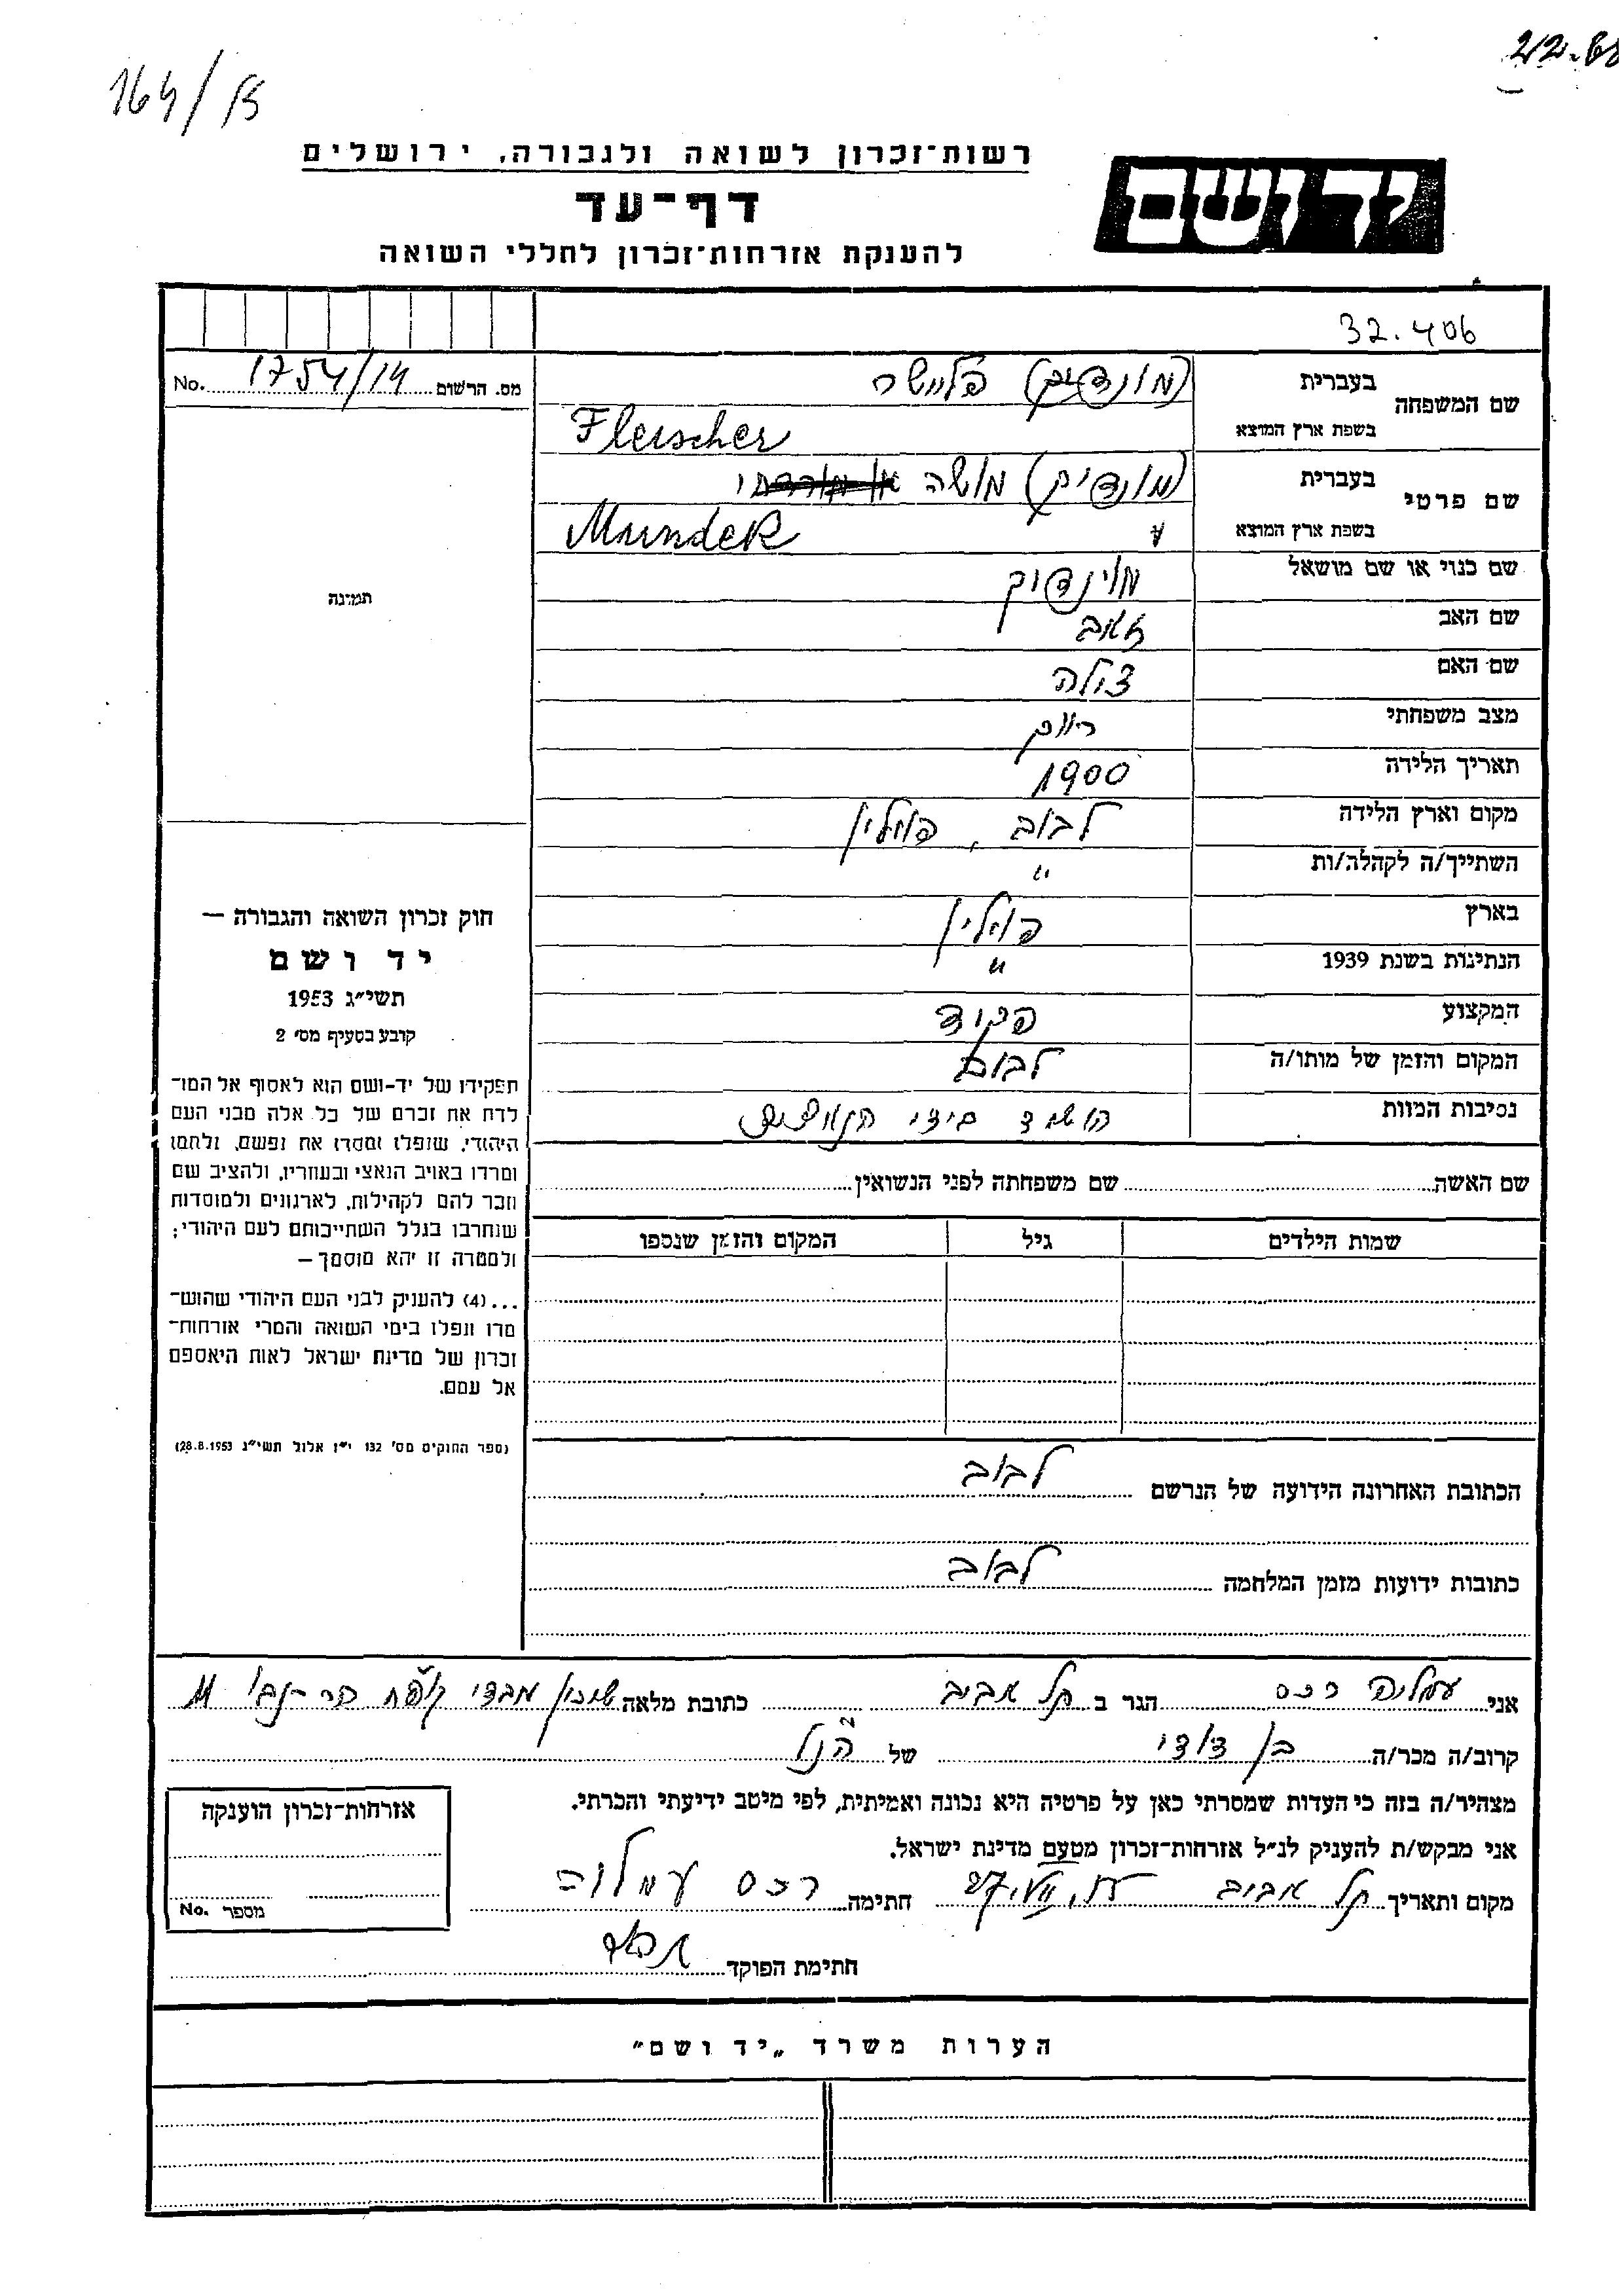 164/15
רשות־זכרון לשואה ולגבורה, ירושלים
דף־עד
להענקת אזרחות־זכרון לחללי השואה
יד ושם
32.406
שם המשפחה
בעברית (מונדיק) פליישר
בשפת ארץ המוצא Fleischer
שם פרטי
בעברית (מונדיק) משה
בשפת ארץ המוצא Mundek
שם כנוי או שם מושאל מונדיק
שם האב זאב
שם האם
מצב משפחתי רווק
תאריך הלידה 1900
מקום וארץ הלידה לבוב, פולין
השתייך/ה לקהלה/ות "
בארץ פולין
הנתינות בשנת 1939 "
המקצוע פקיד
המקום והזמן של מותו/ה לבוב
נסיבות המוות הושמד בידי הנאצים
שם האשה שם משפחתה לפני הנשואין
שמות הילדים גיל המקום והזמן שנספו
הכתובת האחרונה הידועה של הנרשם לבוב
כתובות ידועות מזמן המלחמה לבוב
מס. הרשום 1754/14 No.
תמונה
חוק זכרון השואה והגבורה —
יד ושם
תשי״ג 1953
קובע בסעיף מס׳ 2
תפקידו של יד-ושם הוא לאסוף אל המו־
לדת את זכרם של כל אלה מבני העם
היהודי, שנפלו ומסרו את נפשם, נלחמו
ומרדו באויב הנאצי ובעוזריו, ולהציב שם
וזכר להם לקהילות, לארגונים ולמוסדות
שנחרבו בגלל השתייכותם לעם היהודי;
ולמטרה זו יהא מוסמך —
...(4) להעניק לבני העם היהודי שהוש־
מדו ונפלו בימי השואה והמרי אזרחות־
זכרון של מדינת ישראל לאות היאספם
אל עמם.
(ספר החוקים מס׳ 132 י״ז אלול תשי״ג 28.8.1953)
אני הגר ב תל אביב כתובת מלאה שיכון
קרוב/ה מכר/ה בן דודי של הנ"ל
מצהיר/ה בזה כי העדות שמסרתי כאן על פרטיה היא נכונה ואמיתית, לפי מיטב ידיעתי והכרתי.
אני מבקש/ת להעניק לנ״ל אזרחות־זכרון מטעם מדינת ישראל.
מקום ותאריך תל אביב חתימה
חתימת הפוקד
אזרחות־זכרון הוענקה
מספר No.
הערות משרד „יד ושם״